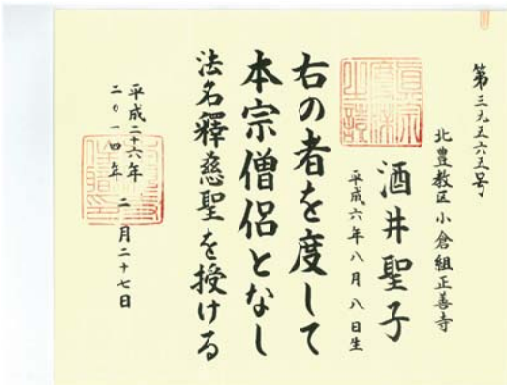 第三九五六五号
北豊教区 小倉組 正善寺
酒井聖子
平成六年八月八日生
右の者を度して
本宗僧侶となし
法名釋慈聖を授ける
平成二十六年
二〇一四年
二月二十七日